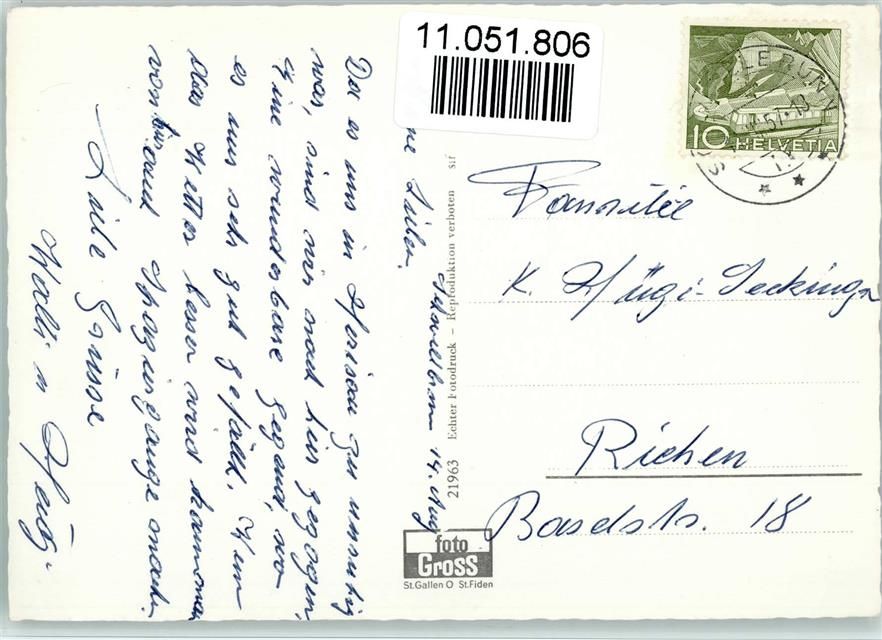 11.051.806
10 HELVETIA
57-18
Schwellbrunn 14. Aug
Lieben.
Da es uns in Herisau zu unruhig
war, sind wir nach hier gezogen,
Eine wunderbare Gegend, wo
es uns sehr gut gefällt. Wenn
das Wetter besser wird kann man
von hier aus Spaziergänge machen.
Liebe Grüsse
Walli u
Familie
K. Hügi-Seckinger
Riehen
Baselstr. 18
21963 Echter Fotodruck – Reproduktion verboten sif
foto
Gross
St.Gallen O St.Fiden